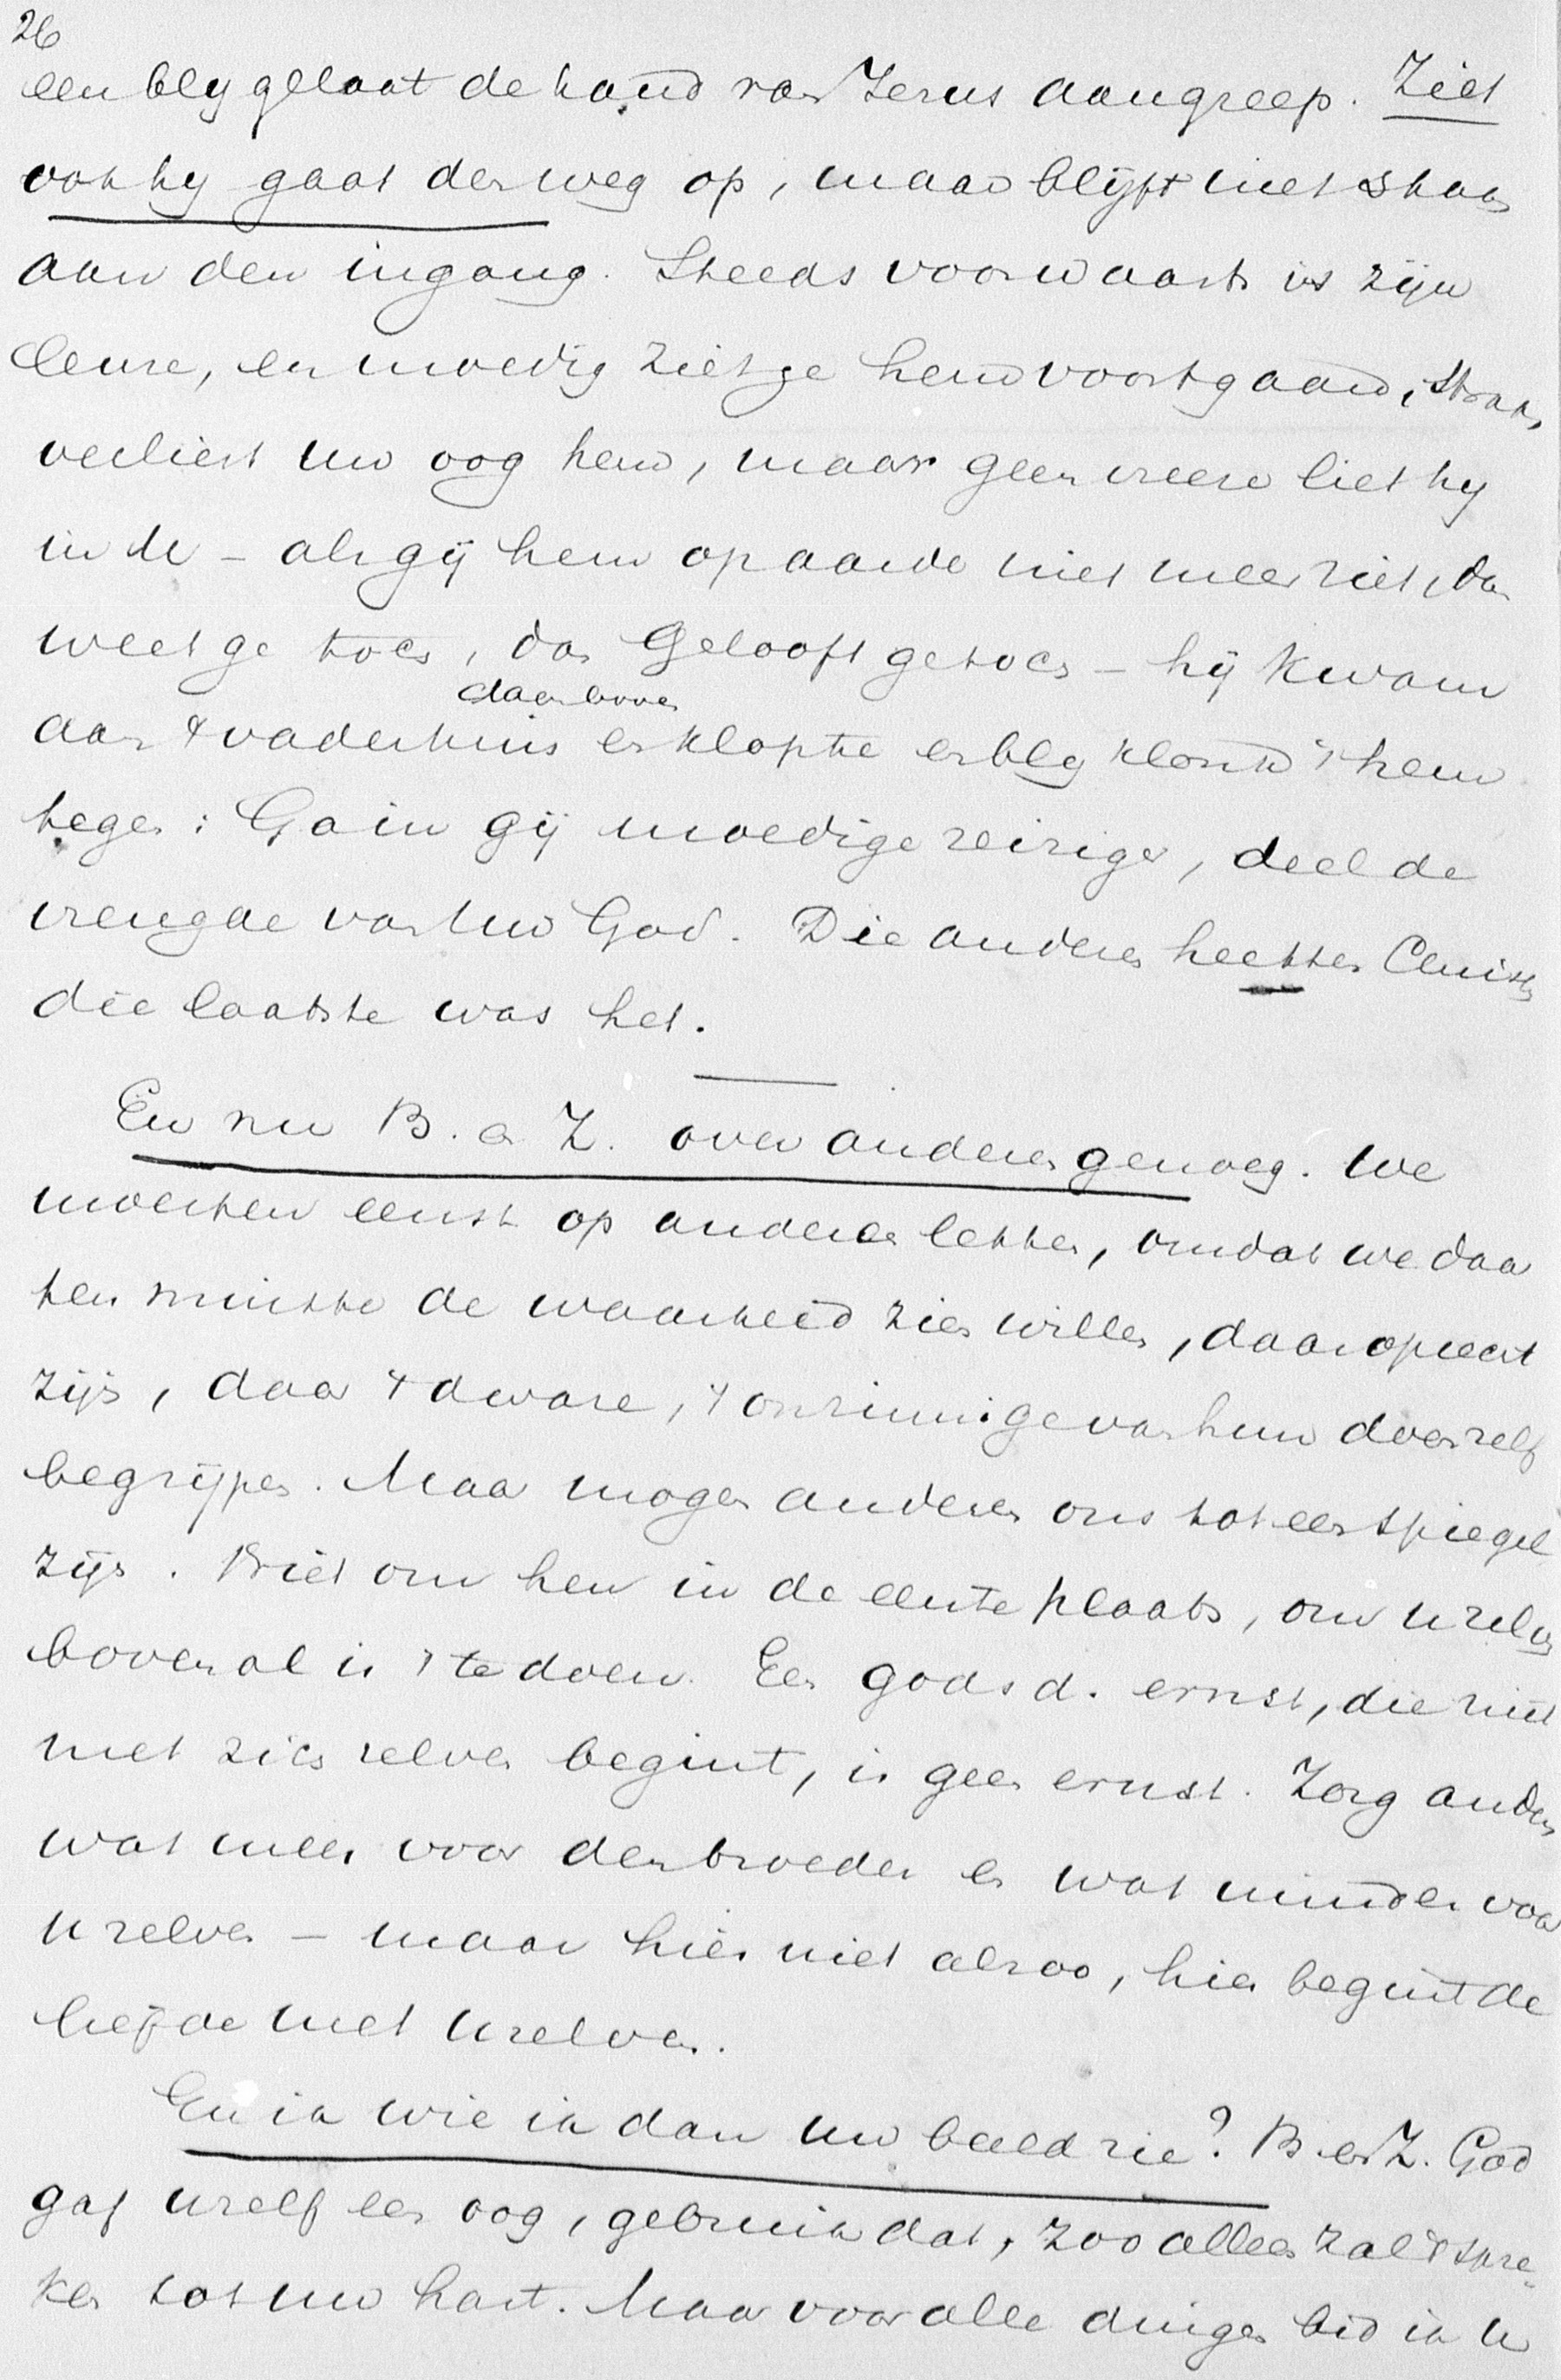 26
een bly gelaat de hand van Jezus aangreep. Ziet
ook hy gaat den weg op, maar blijft niet staan
aan den ingang. Steeds voorwaarts is zijn
leuze, en moedig ziet ge hem voortgaan, straks
verliest uw oog hem, maar geen vreeze liet hy
in U - als gij hem op aarde niet meer ziet, dan
weet ge toch, dan gelooft ge toch - hij kwam
daarboven
aan 't vaderhuis en klopte en bly klonk 't hem
tegen: Ga in gij moedige reiziger, deel de
vreugde van Uw God. Die anderen heetten Christen
die laatste was het.
En nu B. en Z. over anderen genoeg. We
moesten eerst op anderen letten, omdat we daar
ten minste de waarheid zien willen, daar oprecht
zijn, daar 't dwaze, 't onzinnige van hun doen zelf
begrijpen. Maar mogen anderen ons tot een spiegel
zijn. Niet om hen in de eerste plaats, om u zelven
bovenal is 't te doen. Een godsd. ernst, die niet
met zich zelven begint, is geen ernst. Zorg anders
wat meer voor den broeder en wat minder voor
u zelven - maar hier niet alzoo, hier begint de
liefde met uzelven.
En in wie ik dan uw beeld zie? B en Z. God
gaf uzelf een oog, gebruik dat, zoo alleen zal 't spre-
ken tot uw hart. Maar voor alle dingen bid ik U